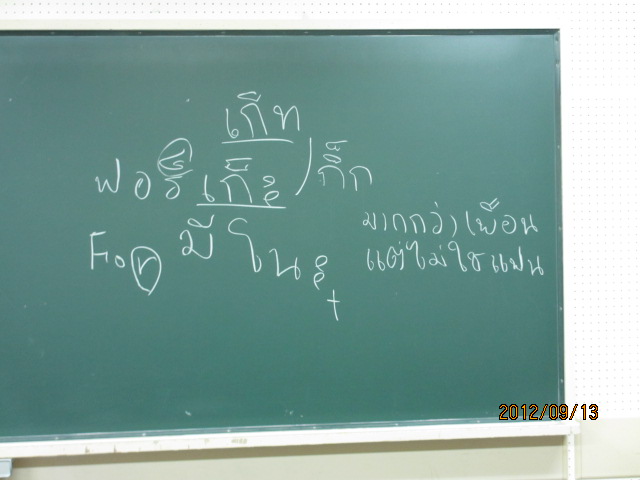 เก๊ท
ฟอร์ เก๊ะ / กิ๊ก
For มี โน ะ
t
มากกว่าเพื่อน
แต่ไม่ใช่แฟน
2012/09/13